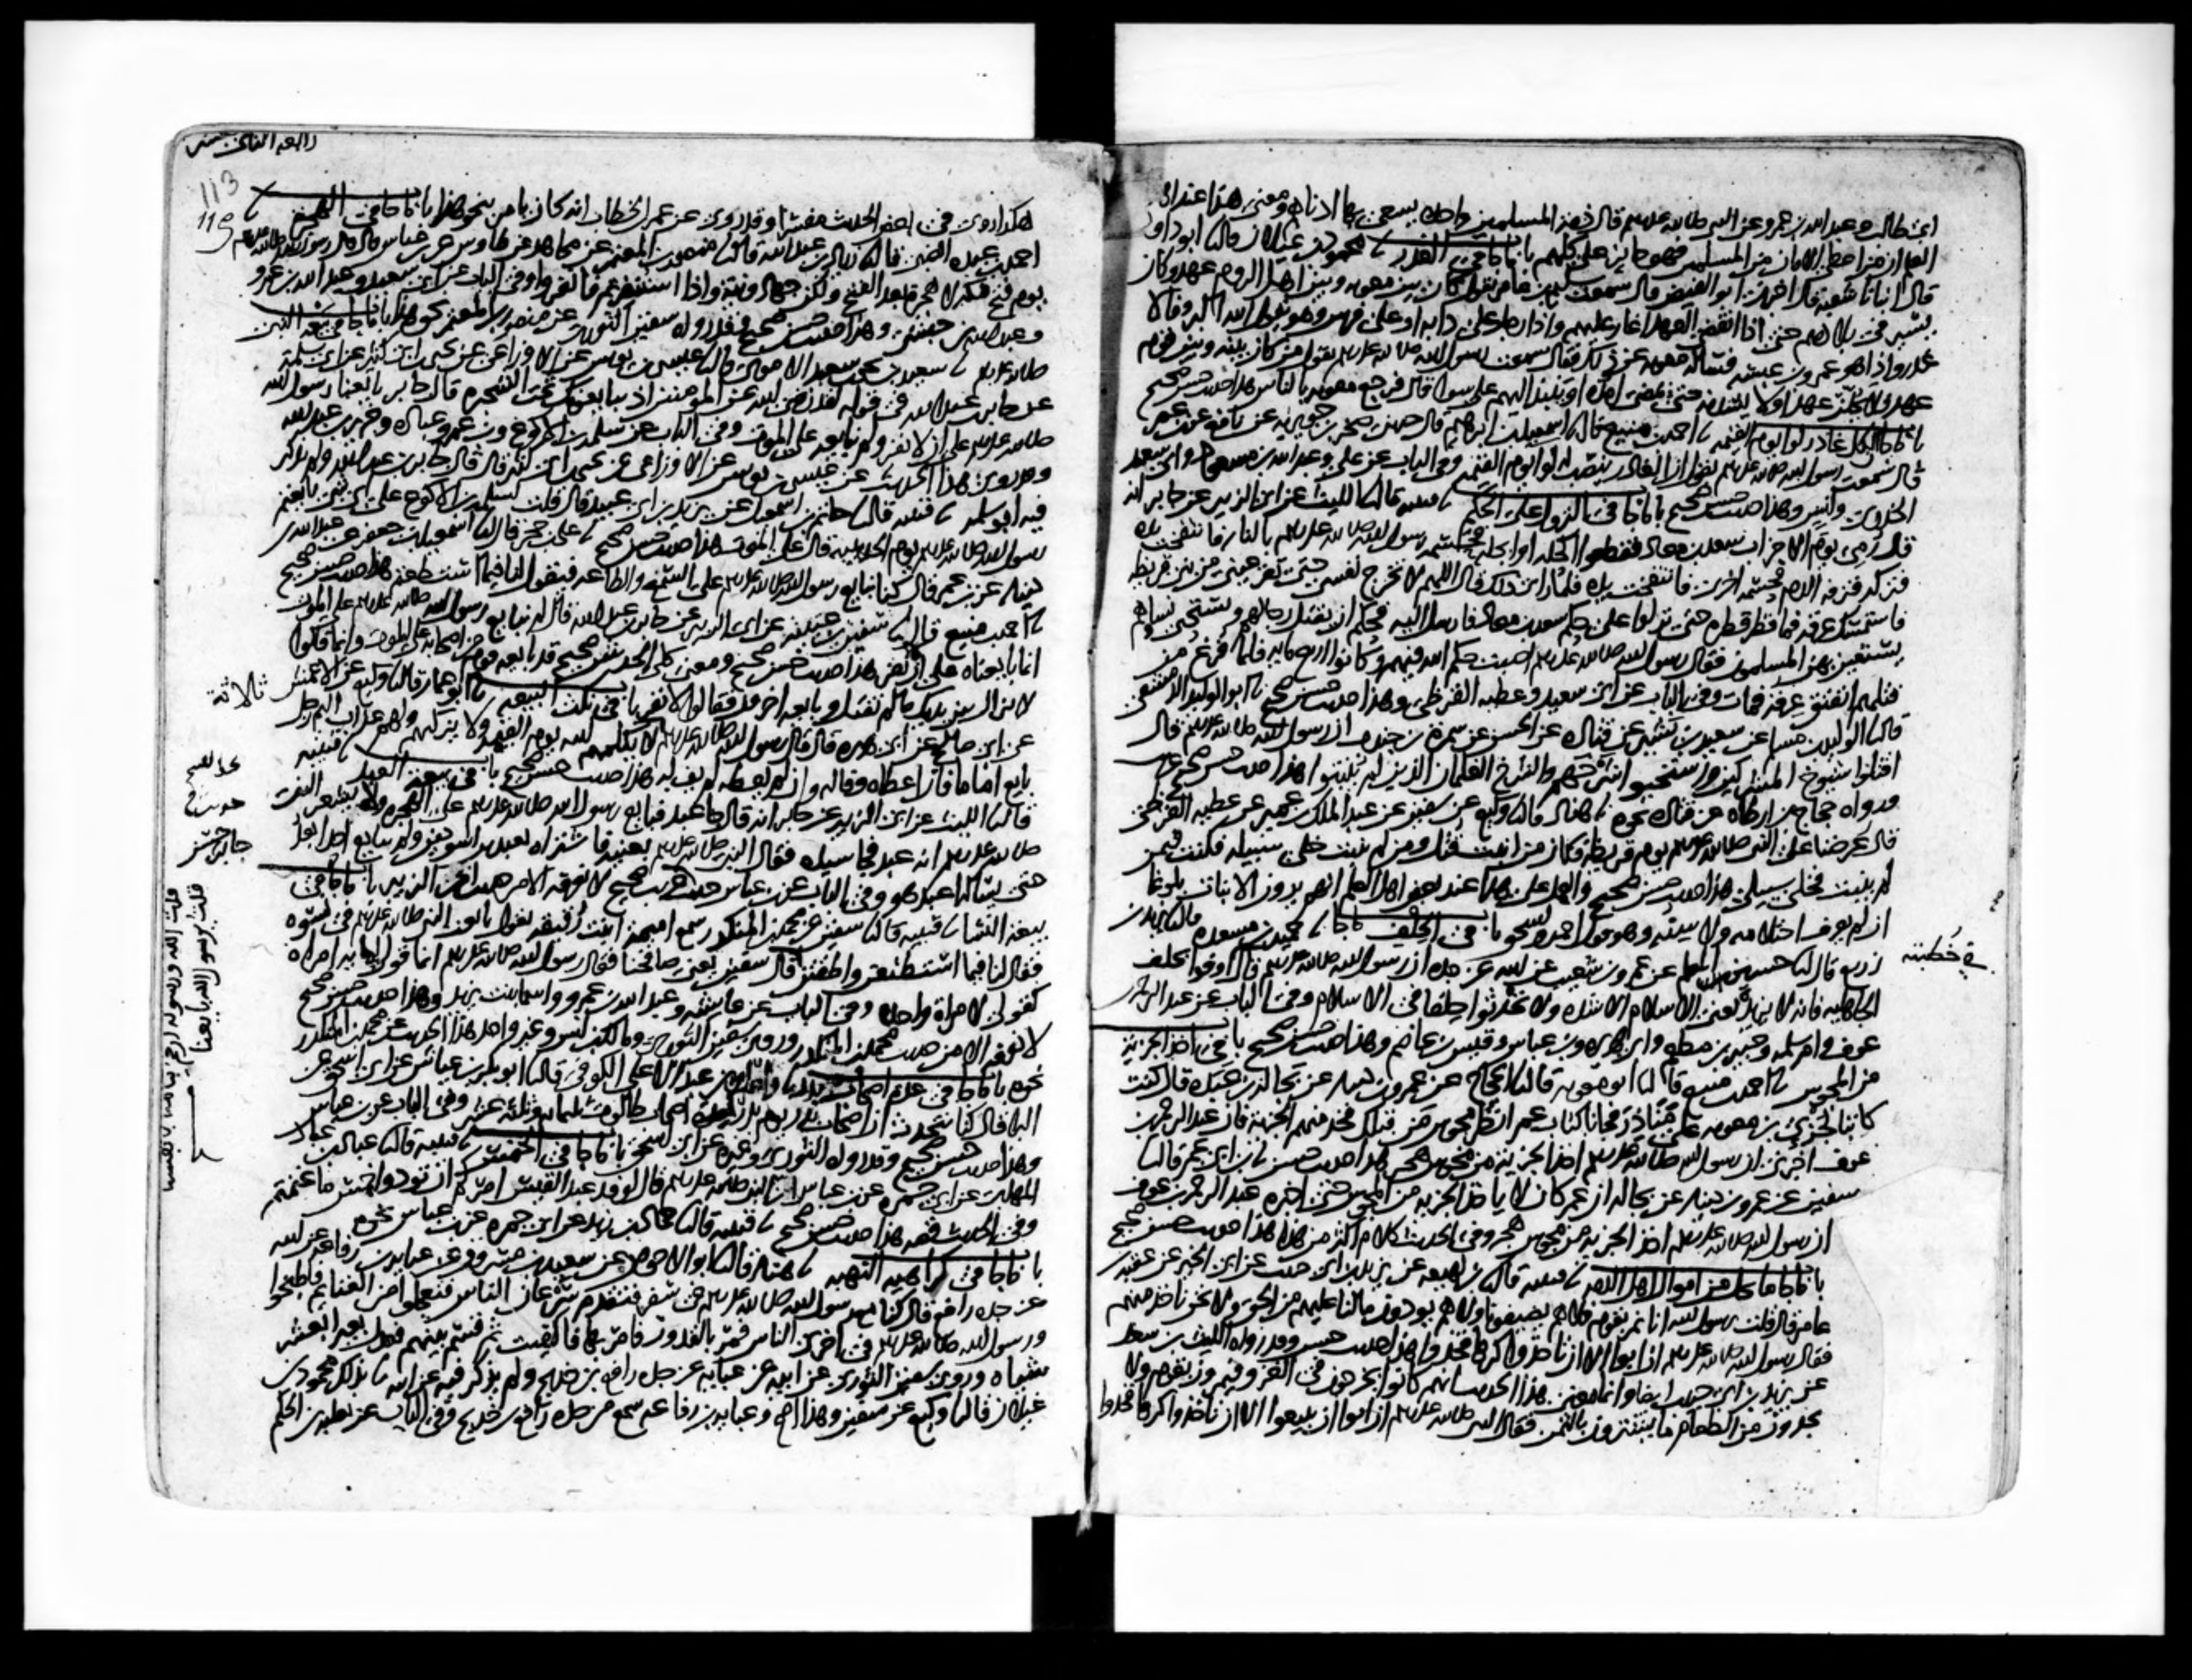 ابى طالب وعبد الله بن عمرو عن النبي صلى الله عليه وسلم قال ذمة المسلمين واحدة يسعى بها ادناهم ومعنى هذا عند
العلم ان من اعطى الامان من المسلمين فهو جايز على كلهم باب ما جا في الغدر محمود بن غيلان قال ابو داود
قال انبانا شعبة قال اخبرني ابو الفيض قال سمعت سليم بن عامر يقول كان بين معوية وبين اهل الروم عهد وكان
يسير في بلادهم حتى اذا انقضى العهد اغار عليهم واذا رجل على دابة او على فرس وهو يقول الله اكبر وفا لا
غدر واذا هو عمرو بن عبسة فساله معوية عن ذلك فقال سمعت رسول الله صلى الله عليه وسلم يقول من كان بينه وبين قوم
عهد فلا يحلن عهدا ولا يشدنه حتى يمضي امده او ينبذ اليهم على سوا قال فرجع معوية بالناس هذا حديث حسن صحيح
باب ما جا لكل غادر لوا يوم القيمة احمد بن منيع قال اسمعيل بن ابراهيم قال حدثني صخر بن جويرية عن نافع عن ابن عمر
قال سمعت رسول الله صلى الله عليه وسلم يقول ان الغادر ينصب له لوا يوم القيمة وفي الباب عن علي وعبد الله بن مسعود وابي سعيد
الخدري وانس وهذا حديث حسن صحيح باب ما جا في النزول على الحكم قتيبة قال الليث عن ابي الزبير عن جابر انه
قال رمي يوم الاحزاب سعد بن معاذ فقطعوا اكحله او ابجله فحسمه رسول الله صلى الله عليه وسلم بالنار فانتفخت يده
فتركه فنزفه الدم فحسمه اخرى فانتفخت يده فلما راى ذلك قال اللهم لا تخرج نفسي حتى تقر عيني من بني قريظة
فاستمسك عرقه فما قطر قطرة حتى نزلوا على حكم سعد بن معاذ فارسل اليه فحكم ان يقتل رجالهم ويستحيى نساهم
يستعين بهن المسلمون فقال رسول الله صلى الله عليه وسلم اصبت حكم الله فيهم وكانوا اربع مايه فلما فرغ من
قتلهم انفتق عرقه فمات وفي الباب عن ابي سعيد وعطية القرظي وهذا حديث حسن صحيح ابو الوليد الدمشقي
قال الوليد بن مسلم عن سعيد بن بشير عن قتادة عن الحسن عن سمرة بن جندب ان رسول الله صلى الله عليه وسلم قال
اقتلوا شيوخ المشركين واستحيوا شرخهم والشرخ الغلمان الذين لم ينبتوا هذا حديث حسن صحيح غريب
ورواه حجاج بن ارطاة عن قتادة نحوه هناد قال وكيع عن سفين عن عبد الملك بن عمير عن عطية القرظي
قال عرضنا على النبي صلى الله عليه وسلم يوم قريظة فكان من انبت قتل ومن لم ينبت خلي سبيله فكنت فيمن
لم ينبت فخلي سبيلي هذا حديث حسن صحيح والعمل على هذا عند بعض اهل العلم انهم يرون الانبات بلوغا
ان لم يعرف احتلامه ولا سنه وهو قول احمد واسحق باب ما جا في الحلف حميد بن مسعدة قال يزيد بن
زريع قال حسين المعلم عن عمرو بن شعيب عن ابيه عن جده ان رسول الله صلى الله عليه وسلم قال اوفوا بحلف
في خطبته
الجاهلية فانه لا يزيده يعني الاسلام الا شدة ولا تحدثوا حلفا في الاسلام وفي الباب عن عبد الرحمن بن
عوف وام سلمة وجبير بن مطعم وابي هريرة وابن عباس وقيس بن عاصم وهذا حديث حسن صحيح باب في اخذ الجزية
من المجوس احمد بن منيع قال ابو معوية قال الحجاج عن عمرو بن دينار عن بجالة بن عبدة قال كنت
كاتبا لجزي بن معوية على مناذر فجانا كتاب عمر انظر مجوس من قبلك فخذ منهم الجزية فان عبد الرحمن بن
عوف اخبرني ان رسول الله صلى الله عليه وسلم اخذ الجزية من مجوس هجر هذا حديث حسن ابن ابي عمر قال
سفين عن عمرو بن دينار عن بجالة ان عمر كان لا ياخذ الجزية من المجوس حتى اخبره عبد الرحمن بن عوف
ان رسول الله صلى الله عليه وسلم اخذ الجزية من مجوس هجر وفي الحديث كلام اكثر من هذا هذا حديث حسن صحيح
باب ما جا ما يحل من اموال اهل الذمة قتيبة قال ابن لهيعة عن يزيد بن ابي حبيب عن ابي الخير عن عقبة بن
عامر قال قلت يرسول الله انا نمر بقوم فلا هم يضيفونا ولا هم يودون مالنا عليهم من الحق ولا نحن ناخذ منهم
فقال رسول الله صلى الله عليه وسلم ان ابوا الا ان تاخذوا كرها فخذوا هذا حديث حسن وقد رواه الليث بن سعد
عن يزيد بن ابي حبيب ايضا وانما معنى هذا الحديث انهم كانوا يخرجون في الغزو فيمرون بقوم ولا
يجدون من الطعام ما يشترون بالثمن فقال النبي صلى الله عليه وسلم ان ابوا ان يبيعوا الا ان تاخذوا كرها فخذوا
113
119
هكذا روي في بعض الحديث مفسرا وقد روي عن عمر بن الخطاب انه كان يامر بنحو هذا باب ما جا في الهجرة
احمد بن عبدة الضبي قال زياد بن عبد الله قال منصور بن المعتمر عن مجاهد عن طاوس عن ابن عباس قال قال رسول الله صلى الله عليه وسلم
يوم فتح مكة لا هجرة بعد الفتح ولكن جهاد ونية واذا استنفرتم فانفروا وفي الباب عن ابي سعيد وعبد الله بن عمرو
وعبد الله بن حبشي وهذا حديث حسن صحيح وقد رواه سفين الثوري عن منصور بن المعتمر نحو هذا باب ما جا في بيعة النبي
صلى الله عليه وسلم سعيد بن يحيى بن سعيد الاموي قال عيسى بن يونس عن الاوزاعي عن يحيى بن ابي كثير عن ابي سلمة
عن جابر بن عبد الله في قوله لقد رضي الله عن المومنين اذ يبايعونك تحت الشجرة قال جابر بايعنا رسول الله
صلى الله عليه وسلم على ان لا نفر ولم نبايعه على الموت وفي الباب عن سلمة بن الاكوع وابن عمر وعبادة وجرير بن عبد الله
وقد روي هذا الحديث عن عيسى بن يونس عن الاوزاعي عن يحيى بن ابي كثير قال قال جابر بن عبد الله ولم يذكر
فيه ابو سلمة قتيبة قال حاتم بن اسمعيل عن يزيد بن ابي عبيد قال قلت لسلمة بن الاكوع على اي شي بايعتم
رسول الله صلى الله عليه وسلم يوم الحديبية قال على الموت هذا حديث حسن صحيح علي بن حجر قال اسمعيل بن جعفر عن عبد الله بن
دينار عن ابن عمر قال كنا نبايع رسول الله صلى الله عليه وسلم على السمع والطاعة فيقول لنا فيما استطعتم هذا حديث حسن صحيح
احمد بن منيع قال سفين بن عيينة عن ابي الزبير عن جابر بن عبد الله قال لم نبايع رسول الله صلى الله عليه وسلم على الموت
انما بايعناه على ان لا نفر هذا حديث حسن صحيح ومعنى كلا الحديثين صحيح قد بايعه قوم من اصحابه على الموت وانما قالوا
لا نزال بين يديك ما لم نقتل وبايعه اخرون فقالوا لا نفر باب في نكث البيعة ابو عمار قال وكيع عن الاعمش
ثلاثة
عن ابي صالح عن ابي هريرة قال قال رسول الله صلى الله عليه وسلم لا يكلمهم الله يوم القيمة ولا يزكيهم ولهم عذاب اليم رجل
بايع اماما فان اعطاه وفا له وان لم يعطه لم يف له هذا حديث حسن صحيح باب في بيعة العبد قتيبة
قال الليث عن ابي الزبير عن جابر انه قال جا عبد فبايع رسول الله صلى الله عليه وسلم على الهجرة ولا يشعر النبي
صلى الله عليه وسلم انه عبد فجا سيده فقال النبي صلى الله عليه وسلم بعنيه فاشتراه بعبدين اسودين ولم يبايع احدا بعد
حديث
جابر حسن
حتى يساله اعبد هو وفي الباب عن ابن عباس حديث غريب صحيح لا نعرفه الا من حديث ابي الزبير باب ما جا في
بيعة النسا قتيبة قال سفين عن محمد بن المنكدر سمع اميمة ابنت رقيقة تقول بايعت النبي صلى الله عليه وسلم في نسوة
فقال لنا فيما استطعتن واطقتن
قلت الله ورسوله ارحم بنا منا بانفسنا
قلت يرسول الله بايعنا
قال سفين يعني صافحنا فقال رسول الله صلى الله عليه وسلم انما قولي لمايه امراة
كقولي لامراة واحدة وفي الباب عن عايشة وعبد الله بن عمرو واسما بنت يزيد وهذا حديث حسن صحيح
لا نعرفه الا من حديث محمد بن المنكدر وروى سفين الثوري ومالك بن انس وغير واحد هذا الحديث عن محمد بن المنكدر
نحوه باب ما جا في عدة اصحاب بدر واصل بن عبد الاعلى الكوفي قال ابو بكر بن عياش عن ابي اسحق عن
البرا قال كنا نتحدث ان اصحاب بدر يوم بدر كعدة اصحاب طالوت ثلثمايه وثلثة عشر وفي الباب عن ابن عباس
وهذا حديث حسن صحيح وقد رواه الثوري وغيره عن ابي اسحق باب ما جا في الخمس قتيبة قال عباد بن عباد
المهلبي عن ابي جمرة عن ابن عباس ان النبي صلى الله عليه وسلم قال لوفد عبد القيس امركم ان تودوا خمس ما غنمتم
وفي الحديث قصة هذا حديث حسن صحيح قتيبة قال حماد بن زيد عن ابي جمرة عن ابن عباس نحوه
باب ما جا في كراهية النهبة هناد قال ابو الاحوص عن سعيد بن مسروق عن عباية بن رفاعة عن ابيه
عن جده رافع قال كنا مع رسول الله صلى الله عليه وسلم في سفر فتقدم سرعان الناس فتعجلوا من الغنايم فاطبخوا
ورسول الله صلى الله عليه وسلم في اخرى الناس فمر بالقدور فامر بها فاكفيت ثم قسم بينهم فعدل بعيرا بعشر
شياه وروى سفين الثوري عن ابيه عن عباية عن جده رافع بن خديج ولم يذكر فيه عن ابيه بذلك محمود بن
غيلان قال وكيع عن سفين وهذا اصح وعباية بن رفاعة سمع من جده رافع بن خديج وفي الباب عن ثعلبة بن الحكم